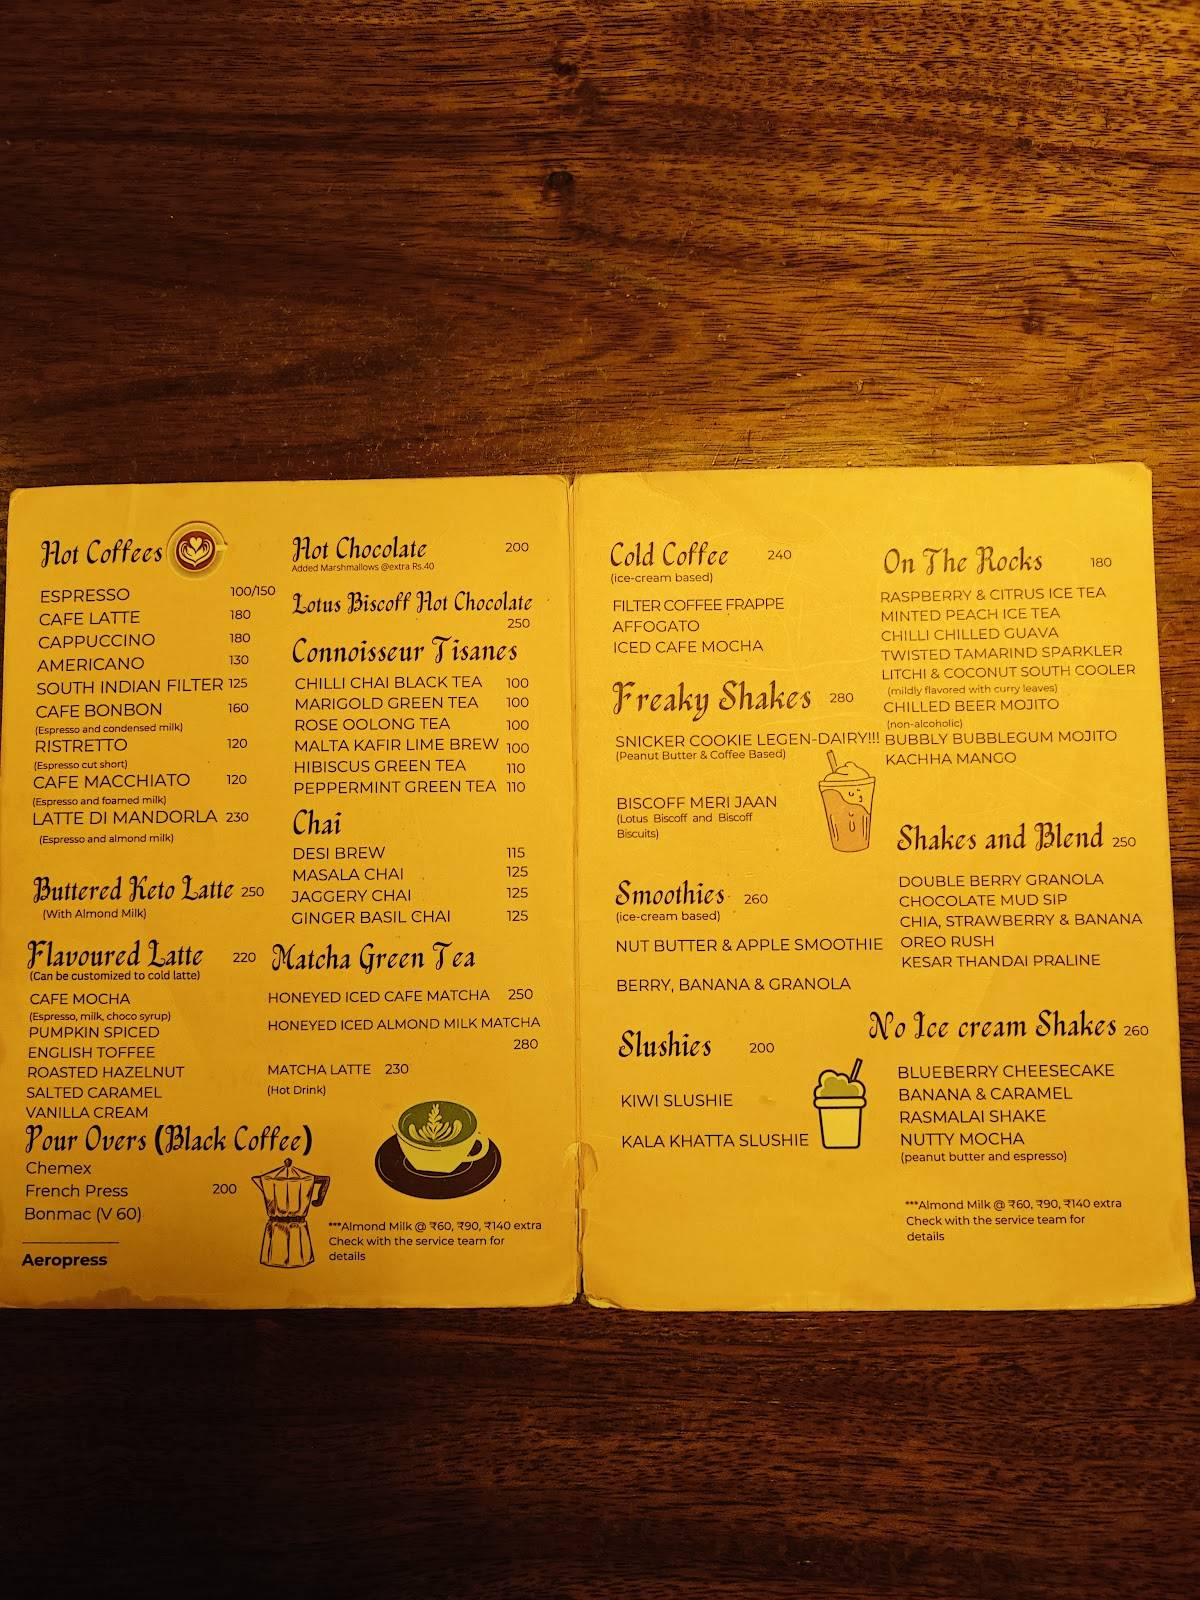 Hot Coffees
ESPRESSO 100/150
CAFE LATTE 180
CAPPUCCINO 180
AMERICANO 130
SOUTH INDIAN FILTER 125
CAFE BONBON 160
(Espresso and condensed milk)
RISTRETTO 120
(Espresso cut short)
CAFE MACCHIATO 120
(Espresso and foamed milk)
LATTE DI MANDORLA 230
(Espresso and almond milk)
Buttered Keto Latte 250
(With Almond Milk)
Flavoured Latte 220
(Can be customized to cold latte)
CAFE MOCHA
(Espresso, milk, choco syrup)
PUMPKIN SPICED
ENGLISH TOFFEE
ROASTED HAZELNUT
SALTED CARAMEL
VANILLA CREAM
Pour Overs (Black Coffee)
Chemex
French Press 200
Bonmac (V 60)
Aeropress
Hot Chocolate 200
Added Marshmallows @extra Rs.40
Lotus Biscoff Hot Chocolate
250
Connoisseur Tisanes
CHILLI CHAI BLACK TEA 100
MARIGOLD GREEN TEA 100
ROSE OOLONG TEA 100
MALTA KAFIR LIME BREW 100
HIBISCUS GREEN TEA 110
PEPPERMINT GREEN TEA 110
Chai
DESI BREW 115
MASALA CHAI 125
JAGGERY CHAI 125
GINGER BASIL CHAI 125
Matcha Green Tea
HONEYED ICED CAFE MATCHA 250
HONEYED ICED ALMOND MILK MATCHA
280
MATCHA LATTE 230
(Hot Drink)
***Almond Milk @ ₹60, ₹90, ₹140 extra
Check with the service team for
details
Cold Coffee 240
(ice-cream based)
FILTER COFFEE FRAPPE
AFFOGATO
ICED CAFE MOCHA
Freaky Shakes 280
SNICKER COOKIE LEGEN-DAIRY!!!
(Peanut Butter & Coffee Based)
BISCOFF MERI JAAN
(Lotus Biscoff and Biscoff
Biscuits)
Smoothies 260
(ice-cream based)
NUT BUTTER & APPLE SMOOTHIE
BERRY, BANANA & GRANOLA
Slushies 200
KIWI SLUSHIE
KALA KHATTA SLUSHIE
On The Rocks 180
RASPBERRY & CITRUS ICE TEA
MINTED PEACH ICE TEA
CHILLI CHILLED GUAVA
TWISTED TAMARIND SPARKLER
LITCHI & COCONUT SOUTH COOLER
(mildly flavored with curry leaves)
CHILLED BEER MOJITO
(non-alcoholic)
BUBBLY BUBBLEGUM MOJITO
KACHHA MANGO
Shakes and Blend 250
DOUBLE BERRY GRANOLA
CHOCOLATE MUD SIP
CHIA, STRAWBERRY & BANANA
OREO RUSH
KESAR THANDAI PRALINE
No Ice cream Shakes 260
BLUEBERRY CHEESECAKE
BANANA & CARAMEL
RASMALAI SHAKE
NUTTY MOCHA
(peanut butter and espresso)
***Almond Milk @ ₹60, ₹90, ₹140 extra
Check with the service team for
details